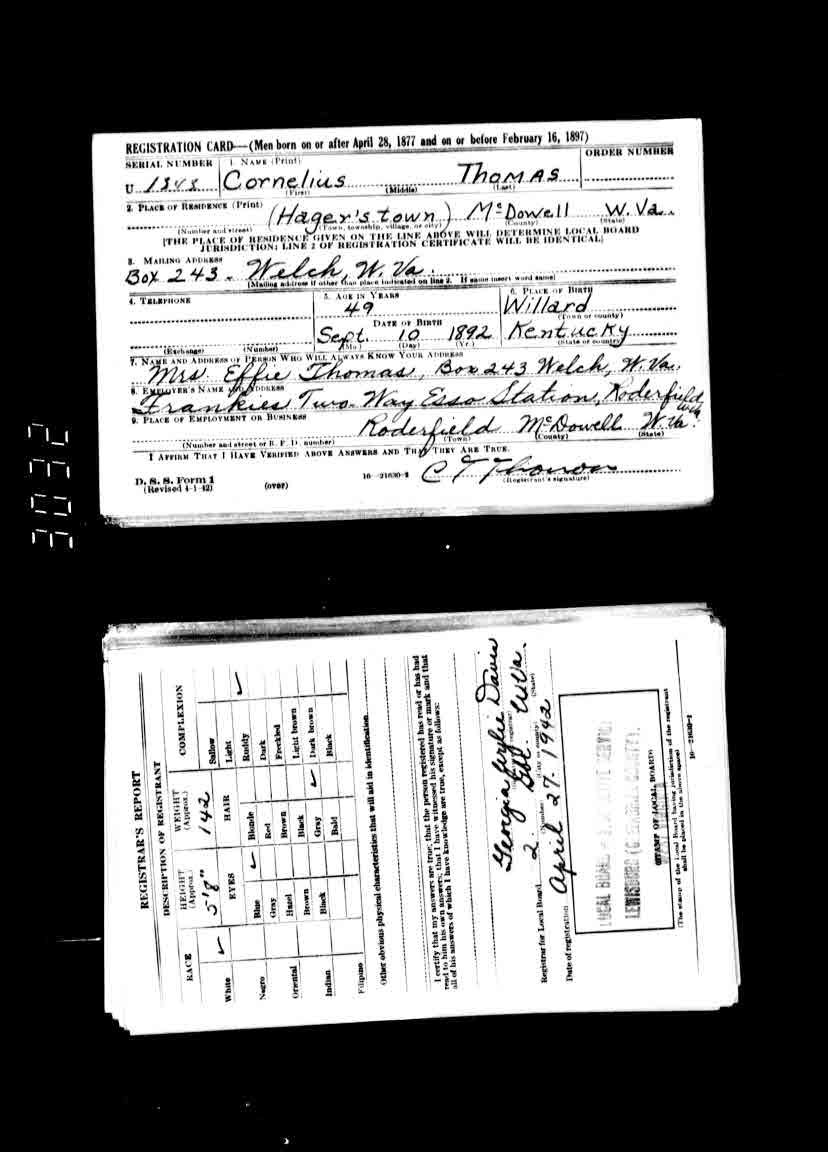 REGISTRATION CARD—(Men born on or after April 28, 1877 and on or before February 16, 1897)
SERIAL NUMBER 1. NAME (Print) ORDER NUMBER
U 1848 Cornelius Thomas
(First) (Middle) (Last)
2. PLACE OF RESIDENCE (Print)
(Hager's town) McDowell W. Va.
(Number and street) (Town, township, village, or city) (County) (State)
[THE PLACE OF RESIDENCE GIVEN ON THE LINE ABOVE WILL DETERMINE LOCAL BOARD
JURISDICTION; LINE 2 OF REGISTRATION CERTIFICATE WILL BE IDENTICAL]
3. MAILING ADDRESS
Box 243 - Welch, W. Va.
[Mailing address if other than place indicated on line 2. If same insert word same]
4. TELEPHONE 5. AGE IN YEARS 6. PLACE OF BIRTH
49 Willard
DATE OF BIRTH (Town or county)
Sept. 10 1892 Kentucky
(Exchange) (Number) (Mo.) (Day) (Yr.) (State or country)
7. NAME AND ADDRESS OF PERSON WHO WILL ALWAYS KNOW YOUR ADDRESS
Mrs. Effie Thomas, Box 243 Welch, W. Va.
8. EMPLOYER'S NAME AND ADDRESS
Frankies Two-Way Esso Station, Roderfield, W. Va.
9. PLACE OF EMPLOYMENT OR BUSINESS
Roderfield McDowell W. Va.
(Number and street or R. F. D. number) (Town) (County) (State)
I AFFIRM THAT I HAVE VERIFIED ABOVE ANSWERS AND THAT THEY ARE TRUE.
D. S. S. Form 1
(Revised 4-1-42) (over) 16—21630-2 C T Thomas
(Registrant's signature)
3032
REGISTRAR'S REPORT
DESCRIPTION OF REGISTRANT
RACE HEIGHT (Approx.) WEIGHT (Approx.) COMPLEXION
5-8" 142 Sallow
White ✓ EYES HAIR Light
Blue ✓ Blonde Ruddy ✓
Negro Gray Red Dark
Hazel Brown Freckled
Oriental Brown Black Light brown
Black Gray ✓ Dark brown
Indian Bald Black
Filipino
Other obvious physical characteristics that will aid in identification
I certify that my answers are true; that the person registered has read or has had
read to him his own answers; that I have witnessed his signature or mark and that
all of his answers of which I have knowledge are true, except as follows:
Georgia Davis
Registrar for Local Board 2. W. Va.
(Number) (City or county) (State)
Date of registration April 27 - 1942
(STAMP OF LOCAL BOARD)
(The stamp of the Local Board having jurisdiction of the registrant
shall be placed in the above space)
16—21630-1